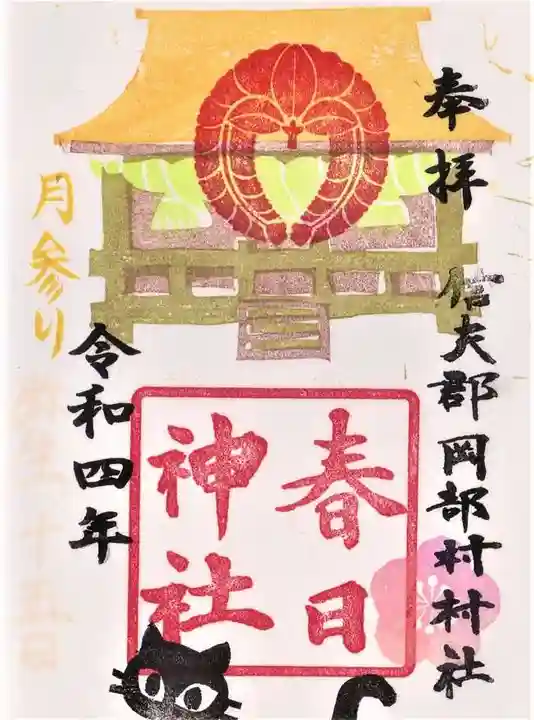 奉拝 信夫郡岡部村村社
春日
神社
月参り
令和四年